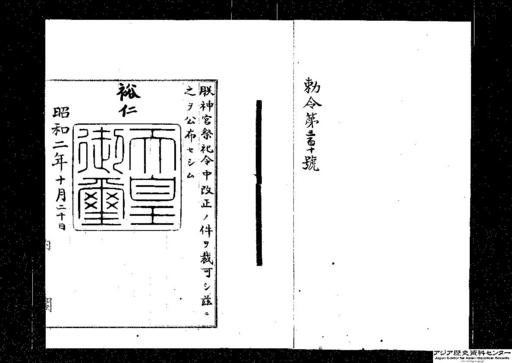 勅令第三百十號
朕神宮祭祀令中改正ノ件ヲ裁可シ茲ニ
之ヲ公布セシム
裕仁
天皇御璽
昭和二年十月二十日
アジア歴史資料センター
Japan Center for Asian Historical Records